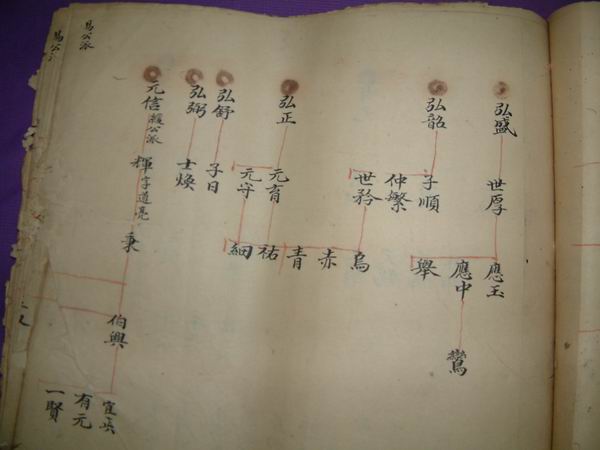 弘盛
弘韶
弘正
弘舒
弘弼
元信護公派
世厚
子順
仲繁
世矜
元育
元守
子日
士煥
輝字道亮
應玉
應中
舉
烏
赤
青
祐
細
秉
鸞
伯興
有元
一賢
易公派
易公